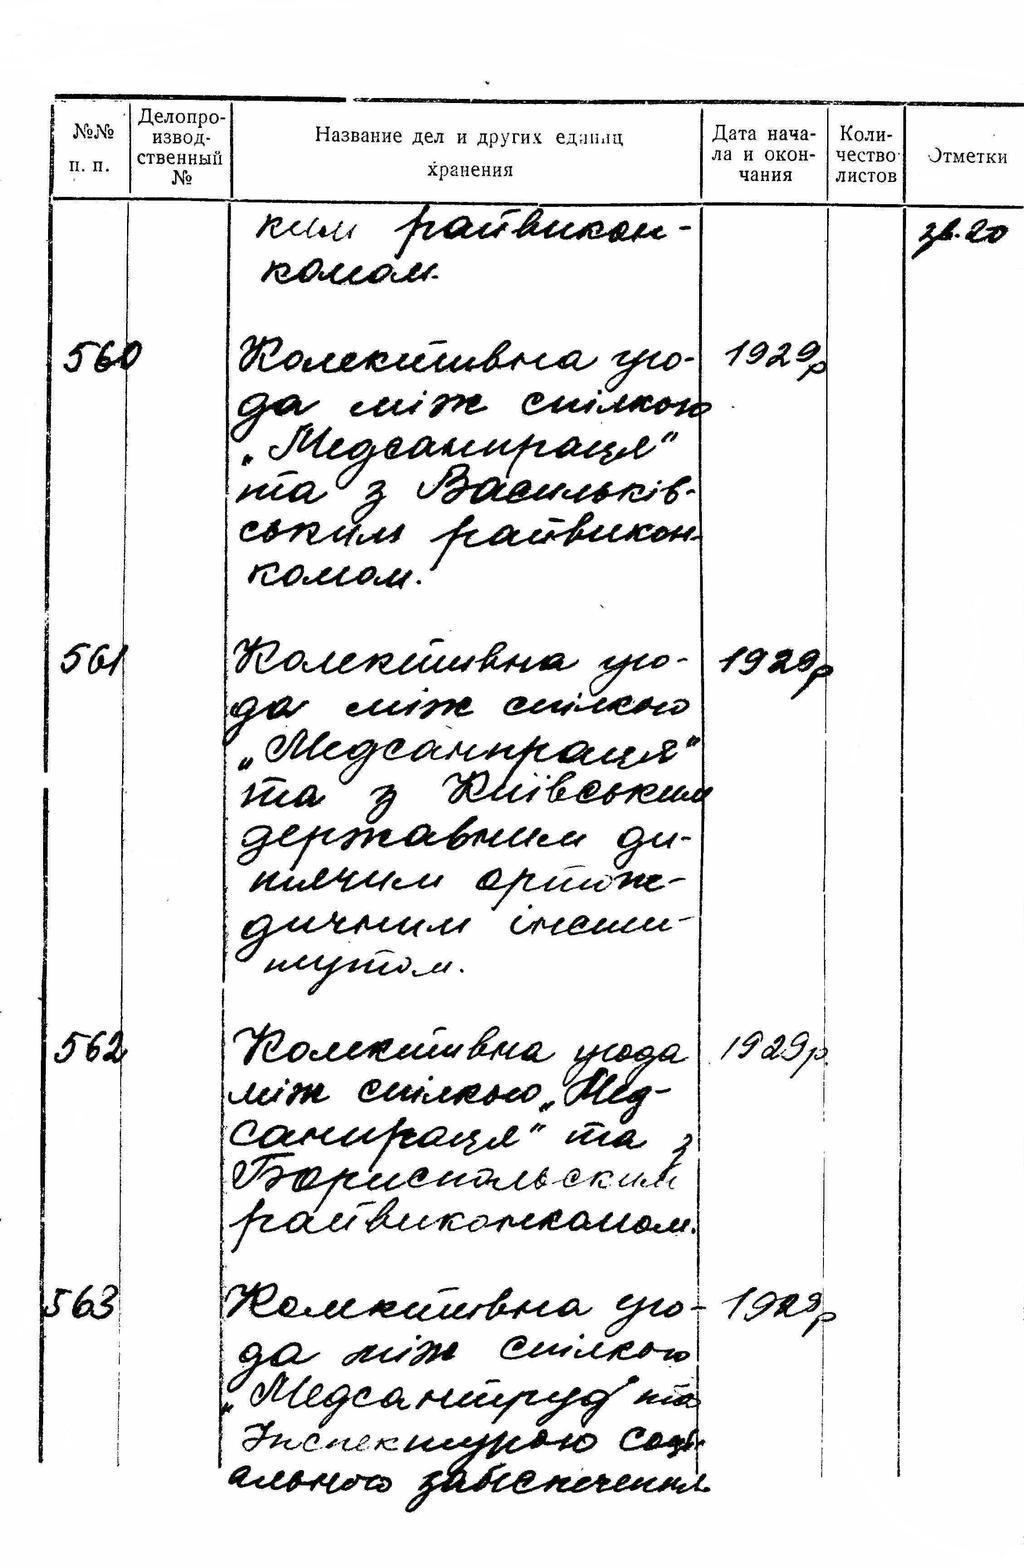 №№ п. п.
Делопроизводственный №
Название дел и других единиц хранения
Дата начала и окончания
Количество листов
Отметки
ким райвикон-
комом.
зв. 20
560
Колективна уго-
1929р
да між спілкою
„Медсанпраця"
та з Васильків-
ським райвикон-
комом.
561
Колективна уго-
1929р
да між спілкою
„Медсанпраця"
та з Київським
державним ди-
тячим ортопе-
дичним інсти-
тутом.
562
Колективна угода
1929р.
між спілкою „Мед-
санпраця" та з
Бориспольским
райвиконкомом.
563
Колективна уго-
1929р
да між спілкою
„Медсантруд" та
Інспектурою соці-
ального забеспечення.